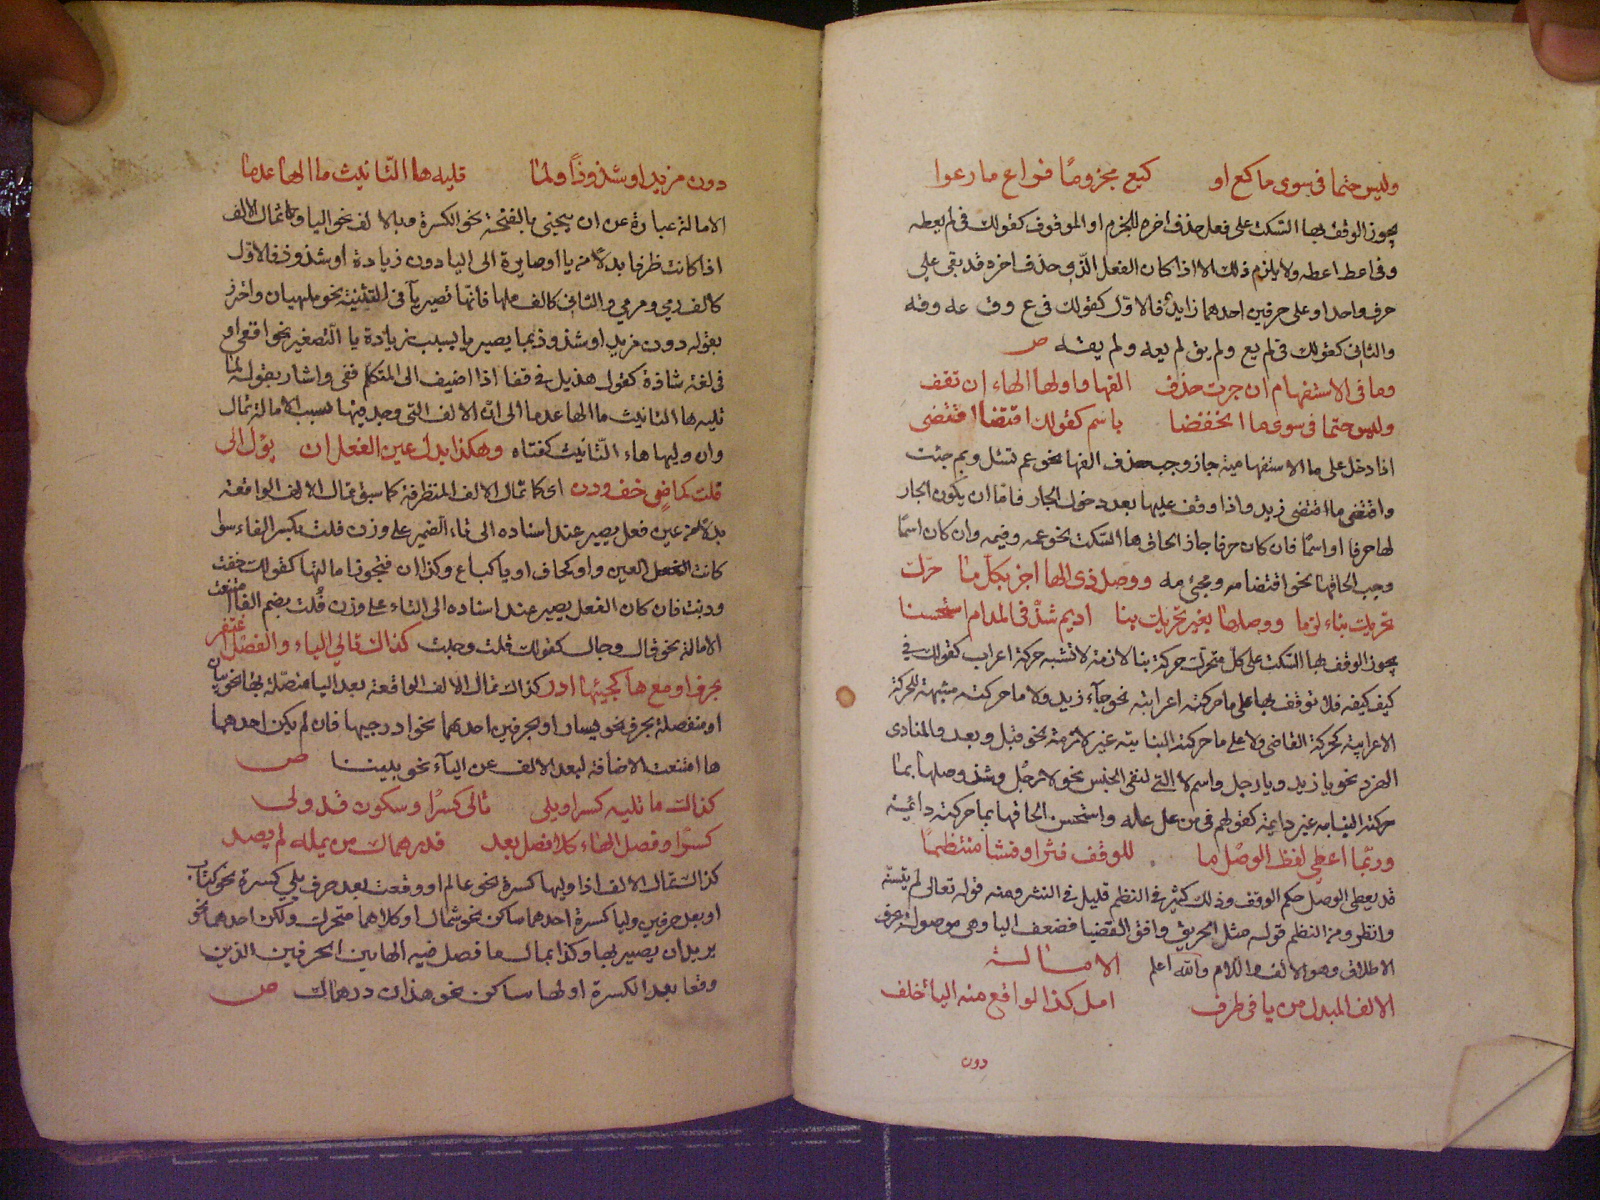 وليس حتما فى سوى ما كع او كيع مجزوما فراع ما رعوا
يجوز الوقف بها السكت على فعل حذف اخره للجزم او الموقوف كقولك فى لم يعطه
وفى اعط اعطه ولا يلزم ذلك الا اذا كان الفعل الذى حذف اخره قد بقى على
حرف واحد او على حرفين احدهما زايد فالاول كقولك فى ع وق عه وقه
والثانى كقولك فى لم يع ولم يق لم يعه ولم يقه ص
وما فى الاستفهام ان جرت حذف الفها واولها الهاء ان تقف
وليس حتما فى سوى ما انخفضا باسم كقولك اقتضا م اقتضى
اذا دخل على ما الاستفهامية جار وجب حذف الفها نحو عم تسئل وبم جئت
واقتضى م اقتضى زيد واذا وقف عليها بعد دخول الجار فاما ان يكون الجار
لها حرفا او اسما فان كان حرفا جاز الحاق ها السكت نحو عمه وفيمه وان كان اسما
وجب الحاقها نحو اقتضا مه ومجئ مه ووصل ذى الها اجز بكل ما حرك
تحريك بناء لزما ووصلها بغير تحريك بنا اديم شذ فى المدام استحسنا
يجوز الوقف بها السكت على كل متحرك حركة بنا لازمة لا تشبه حركة اعراب كقولك فى
كيف كيفه فلا توقف بها على ما حركته اعرابية نحو جآء زيد ولا ما حركته مشبهة للحركة
الاعرابية كحركة الماضى ولا على ما حركته البنائية غير لازمة نحو قبل وبعد والمنادى
المفرد نحو يا زيد ويا رجل واسم لا التى لنفى الجنس نحو لا رجل وشذ وصلها بما
حركته البنايه غير دائمة كقولهم فى من عل عله واستحسن الحاقها بما حركته دائمة
وربما اعطى لفظ الوصل ما للوقف نثرا وفشا منتظما
قد يعطى الوصل حكم الوقف وذلك كثير فى النظم قليل فى النثر ومنه قوله تعالى لم يتسنه
وانظر ومن النظم قوله مثل الحريق وافق القصبا فضعف البا وهى موصولة بحرف
الاطلاق وهو الالف والله اعلم الامالة
الالف المبدل من يا فى طرف امل كذا الواقع منه اليا خلف
دون
دون مزيد او شذوذ ولما تليه ها التانيث ما الها عدما
الامالة عبارة عن ان ينحى بالفتحة نحو الكسرة وبالالف نحو اليا وتمال الالف
اذا كانت طرفا بدلا من يا او صايرة الى اليا دون زيادة او شذوذ فالاول
كالف رمى ومرمى والثانى كالف ملها فانها تصير يآ فى التثنية نحو ملهيان واحترز
بقوله دون مزيد او شذوذ بما يصير يا بسبب زيادة يا التصغير نحو قفى او
فى لغة شاذة كقول هذيل فى قفا اذا اضيف الى المتكلم قفى واشار بقوله لما
تليه ها التانيث ما الها عدما الى ان الالف التى وجد فيها سبب الامالة تمال
وان وليها هاء التانيث كفتاه وهكذا بدل عين الفعل ان يؤل الى
فلت كماضى خف ودن اى كما تمال الالف المتطرفة كما سبق تمال الالف الواقعة
بدلا من عين فعل يصير عند اسناده الى تاء الضمير على وزن فلت بكسر الفاء سوا
كانت العين واو كخاف او يا كباع وكذا ان فيجوز امالتها كقولك خفت
ودنت فان كان الفعل يصير عند اسناده الى التاء على وزن فلت بضم الفا امتنعت
الامالة نحو قال وجال كقولك قلت وجلت كذاك تالى الياء والفصل اغتفر
بحرف او مع ها كجيبها ادر كذاك تمال الالف الواقعة بعد اليا متصلة بها نحو بيان
او منفصلة بحرف نحو يسار او بحرفين احدهما ها نحو ادر جيبها فان لم يكن احدهما
ها امتنعت الاضافة لبعد الالف عن اليآء نحو بيننا ص
كذاك ما تليه كسر او يلى تالى كسر او سكون قد ولى
كسرا وفصل الهاء كلا فصل يعد فدرهماك من يمله لم يصد
كذاك تمال الالف اذا وليها كسرة نحو عالم او وقعت بعد حرف يلى كسرة نحو كتاب
او بعد حرفين وليا كسرة احدهما ساكن نحو شملال او كلاهما متحرك ولكن احدهما ها نحو
يريد ان يضربها وكذا يمال ما فصل فيه الها بين الحرفين الذين
وقعا بعد الكسرة اولهما ساكن نحو هذان درهماك ص